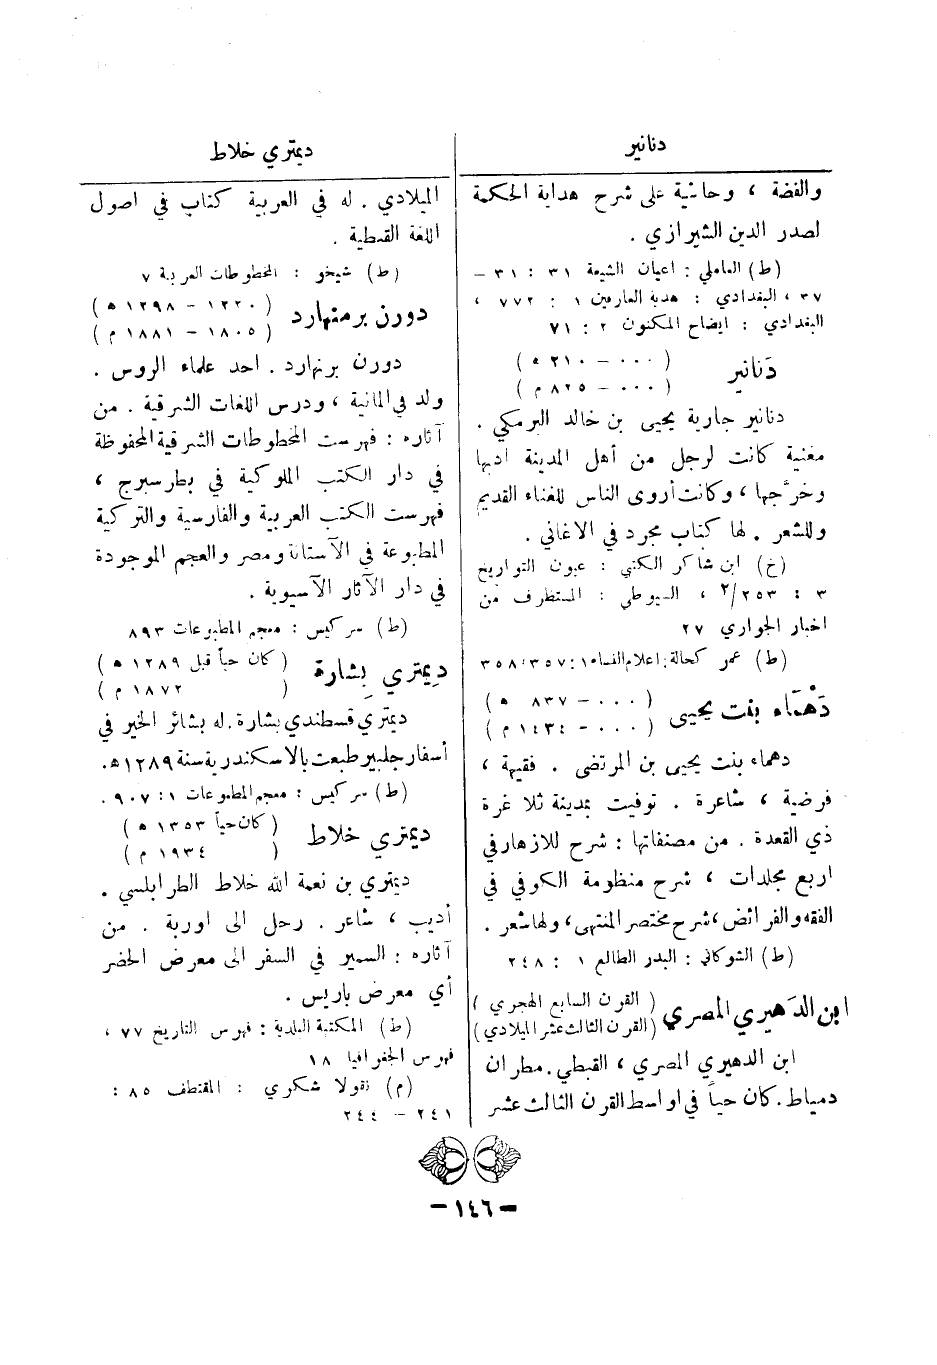 دنانير
والفضة ، وحاشية على شرح هداية الحكمة
لصدر الدين الشيرازي .
(ط) العاملي : اعيان الشيعة ٣١ : ٣١ –
٣٧ ، البغدادي : هدية العارفين ١ : ٧٧٢ ،
البغدادي : ايضاح المكنون ٢ : ٧١
دَنانير ( ٠٠٠ – ٢١٠ ه )
( ٠٠٠ – ٨٢٥ م )
دنانير جارية يحيى بن خالد البرمكي .
مغنية كانت لرجل من أهل المدينة ادبها
وخرَّجها ، وكانت أروى الناس للغناء القديم
وللشعر . لها كتاب مجرد في الاغاني .
(خ) ابن شاكر الكتبي : عيون التواريخ
٣ : ٢/٢٥٣ ، السيوطي : المستظرف من
اخبار الجواري ٢٧
(ط) عمر كحالة : اعلام النساء ١ : ٣٥٧ ، ٣٥٨
دَهْمَاء بنت يحيى ( ٠٠٠ – ٨٣٧ ه )
( ٠٠٠ – ١٤٣٤ م )
دهماء بنت يحيى بن المرتضى . فقيهة ،
فرضية ، شاعرة . توفيت بمدينة ثلا غرة
ذي القعدة . من مصنفاتها : شرح للازهار في
اربع مجلدات ، شرح منظومة الكوفي في
الفقه والفرائض ، شرح مختصر المنتهى ، ولها شعر .
(ط) الشوكاني : البدر الطالع ١ : ٢٤٨
ابن الدَهيري المصري ( القرن السابع الهجري )
( القرن الثالث عشر الميلادي )
ابن الدهيري المصري ، القبطي . مطران
دمياط . كان حياً في اواسط القرن الثالث عشر
ديمتري خلاط
الميلادي . له في العربية كتاب في اصول
اللغة القبطية .
(ط) شيخو : المخطوطات العربية ٧
دورن برمنهارد ( ١٢٢٠ – ١٢٩٨ ه )
( ١٨٠٥ – ١٨٨١ م )
دورن برنهارد . احد علماء الروس .
ولد في المانية ، ودرس اللغات الشرقية . من
آثاره : فهرست المخطوطات الشرقية المحفوظة
في دار الكتب الملوكية في بطرسبرج ،
فهرست الكتب العربية والفارسية والتركية
المطبوعة في الآستانة ومصر والعجم الموجودة
في دار الآثار الآسيوية .
(ط) سركيس : معجم المطبوعات ٨٩٣
دِيمتري بِشارة ( كان حياً قبل ١٢٨٩ ه )
( ١٨٧٢ م )
ديمتري قسطندي بشارة . له بشائر الخير في
أسفار جلبير طبعت بالاسكندرية سنة ١٢٨٩ ه .
(ط) سركيس : معجم المطبوعات ١ : ٩٠٧ .
ديمتري خلاط ( كان حياً ١٣٥٣ ه )
( ١٩٣٤ م )
ديمتري بن نعمة الله خلاط الطرابلسي .
أديب ، شاعر . رحل الى اوربة . من
آثاره : السمير في السفر الى معرض الحضر
أي معرض باريس .
(ط) المكتبة البلدية : فهرس التاريخ ٧٧ ،
فهرس الجغرافيا ١٨
(م) نقولا شكري : المقتطف ٨٥ :
٢٤١ – ٢٤٤
– ١٤٦ –